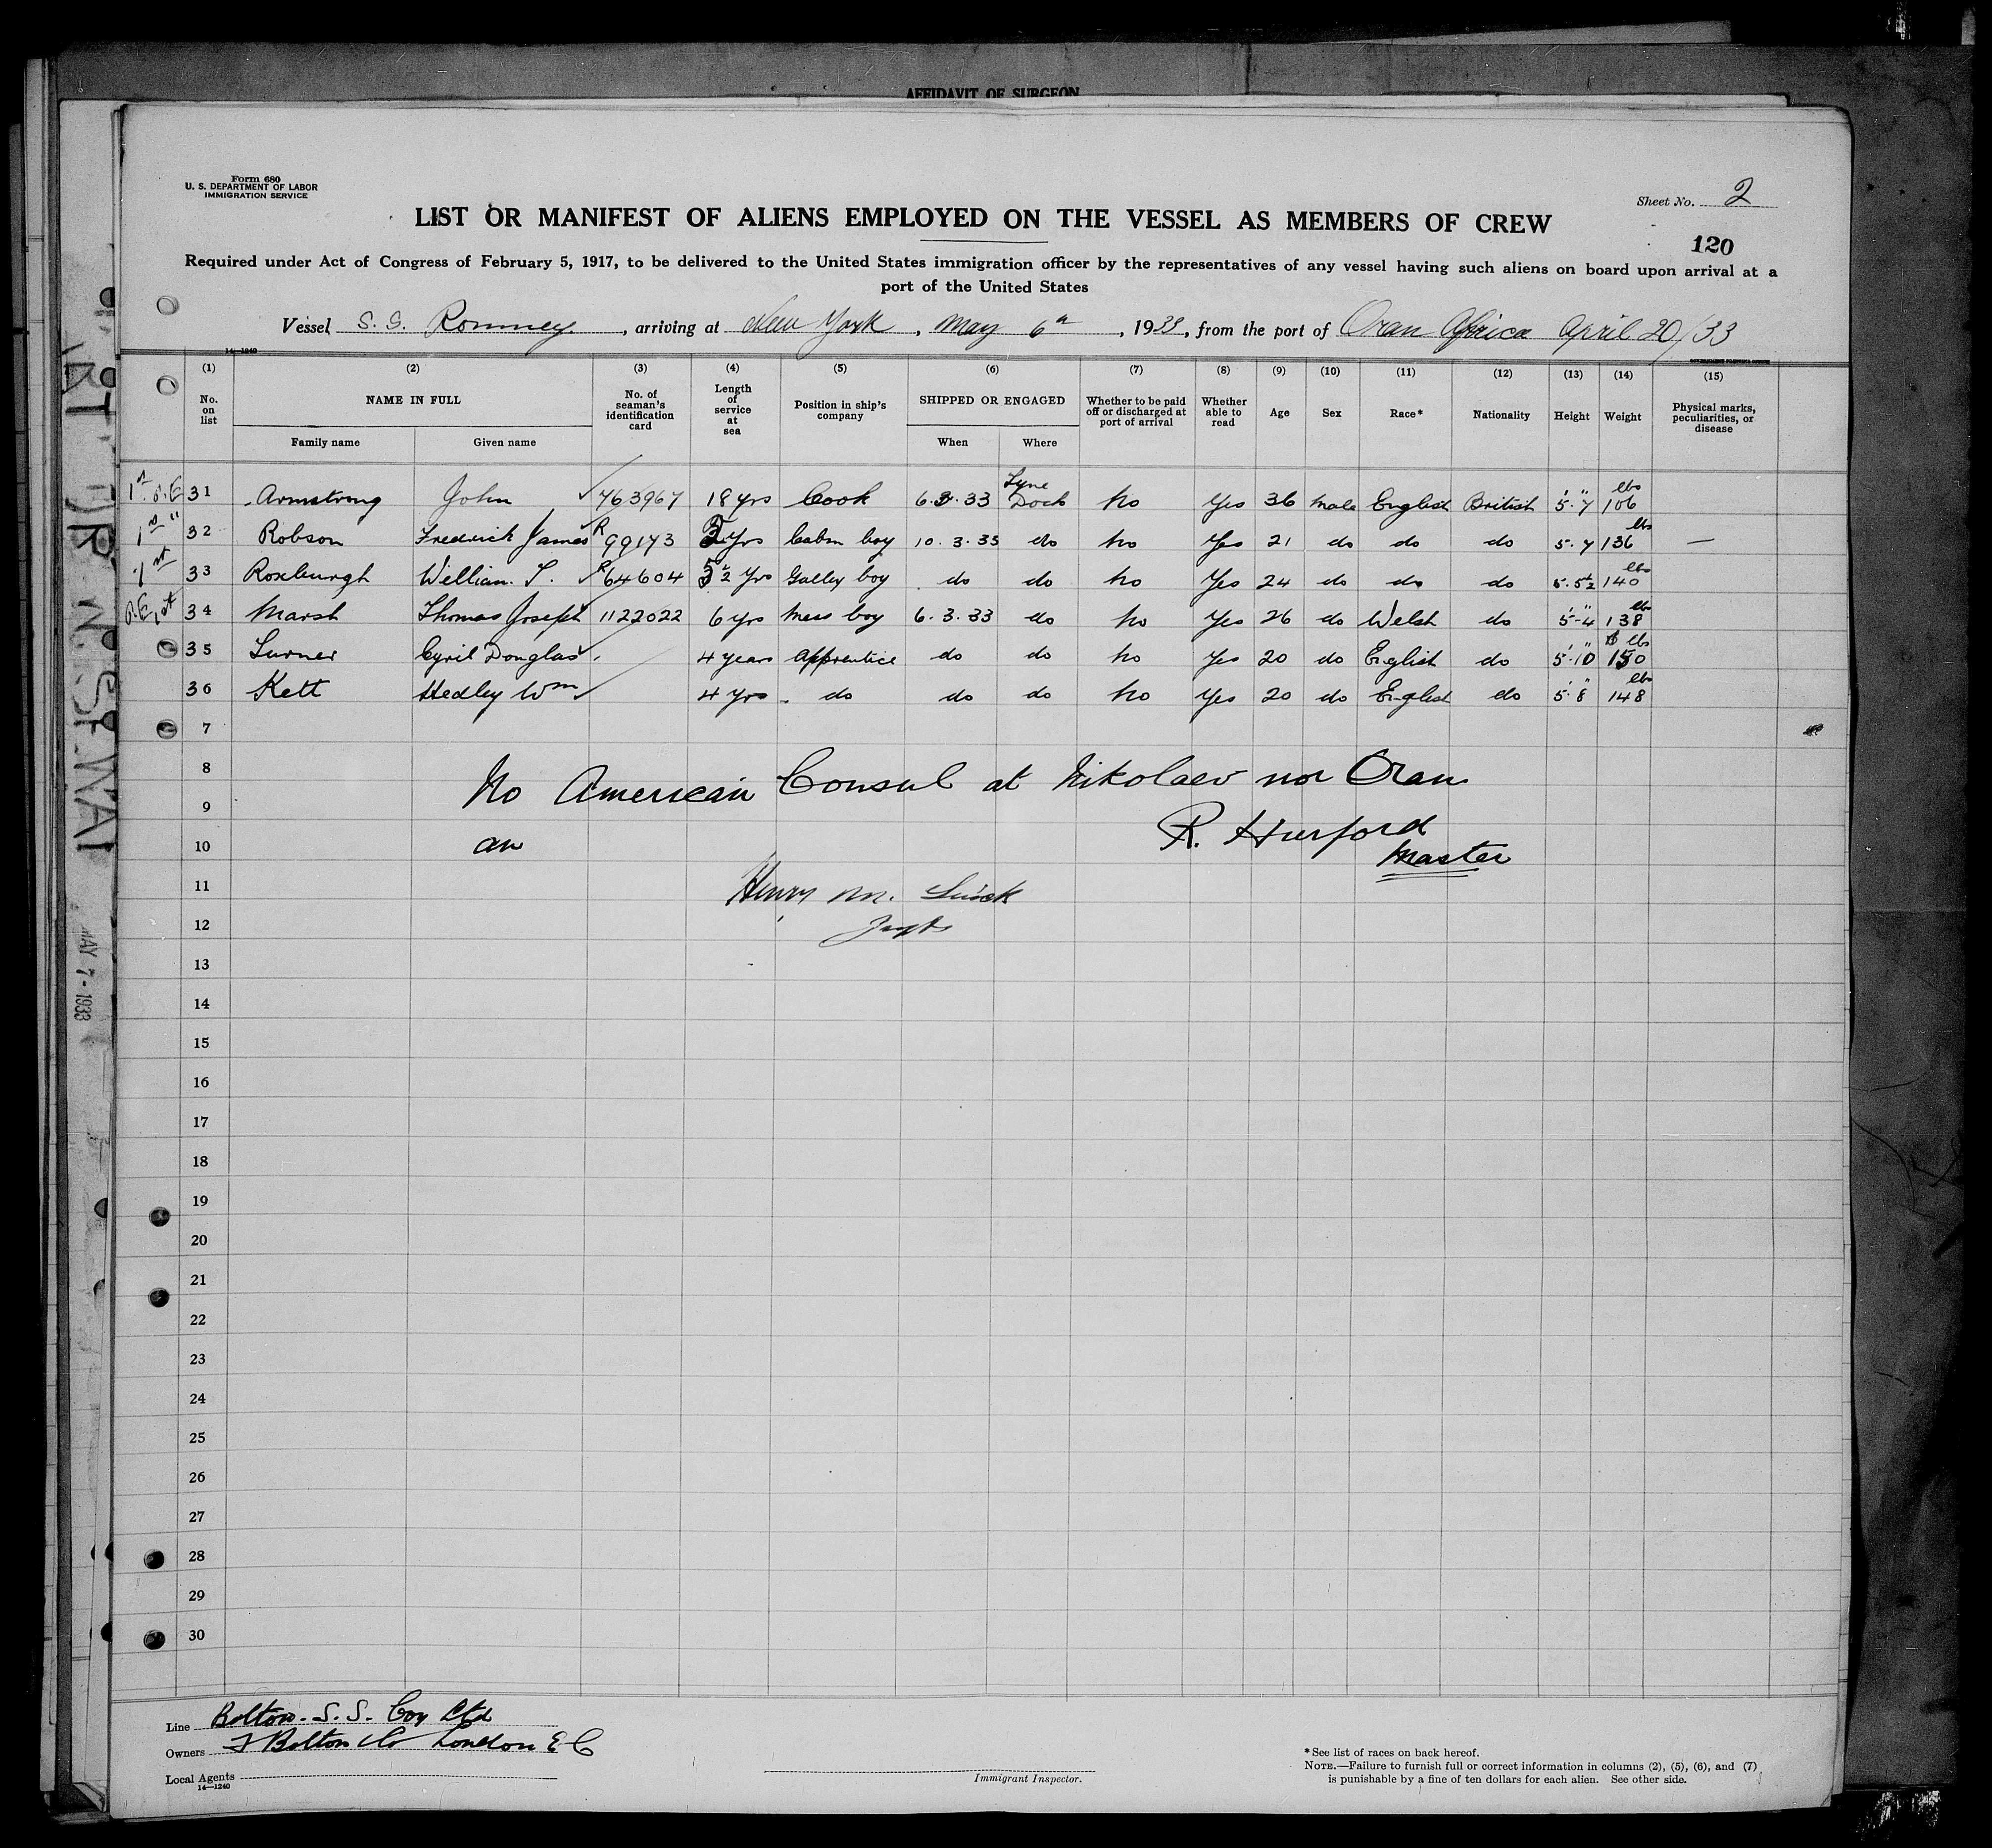 AFFIDAVIT OF SURGEON
Form 680
U. S. DEPARTMENT OF LABOR
IMMIGRATION SERVICE
Sheet No. 2
LIST OR MANIFEST OF ALIENS EMPLOYED ON THE VESSEL AS MEMBERS OF CREW
120
Required under Act of Congress of February 5, 1917, to be delivered to the United States immigration officer by the representatives of any vessel having such aliens on board upon arrival at a
port of the United States
Vessel S. S. Romney, arriving at New York, May 6th, 1933, from the port of Oran Africa April 20/33
14-1240
(1) (2) (3) (4) (5) (6) (7) (8) (9) (10) (11) (12) (13) (14) (15)
No. on list NAME IN FULL Family name Given name No. of seaman's identification card Length of service at sea Position in ship's company SHIPPED OR ENGAGED When Where Whether to be paid off or discharged at port of arrival Whether able to read Age Sex Race* Nationality Height Weight Physical marks, peculiarities, or disease
31 Armstrong John 763967 18 yrs Cook 6.3.33 Tyne Dock No Yes 36 Male English British 5'.7" 106 lbs
1st " 32 Robson Fredrick James R 99173 yrs Cabin boy 10.3.33 do No Yes 21 do do do 5.7 136 lbs —
1st 33 Roxburgh William. T. R 64604 yrs Galley boy do do No Yes 24 do do do 5.5½ 140 lbs
34 Marsh Thomas Joseph 1122022 6 yrs Mess boy 6.3.33 do No Yes 26 do Welsh do 5'-4" 138 lbs
35 Turner Cyril Douglas 4 years Apprentice do do No Yes 20 do English do 5'.10" 150 lbs
36 Kett Hedley Wm 4 yrs - do do do No Yes 20 do English do 5'.8" 148 lbs
7
8
No American Consul at Nikolaev nor Oran
9
R. Hurford
10
Master
11
Henry M.
12
13
14
15
16
17
18
19
20
21
22
23
24
25
26
27
28
29
30
MAY 7 - 1933
Line Bolton. S. S. Coy Ltd
Owners F Bolton & Co London E C
Local Agents
14-1240
Immigrant Inspector.
*See list of races on back hereof.
NOTE.—Failure to furnish full or correct information in columns (2), (5), (6), and (7)
is punishable by a fine of ten dollars for each alien. See other side.